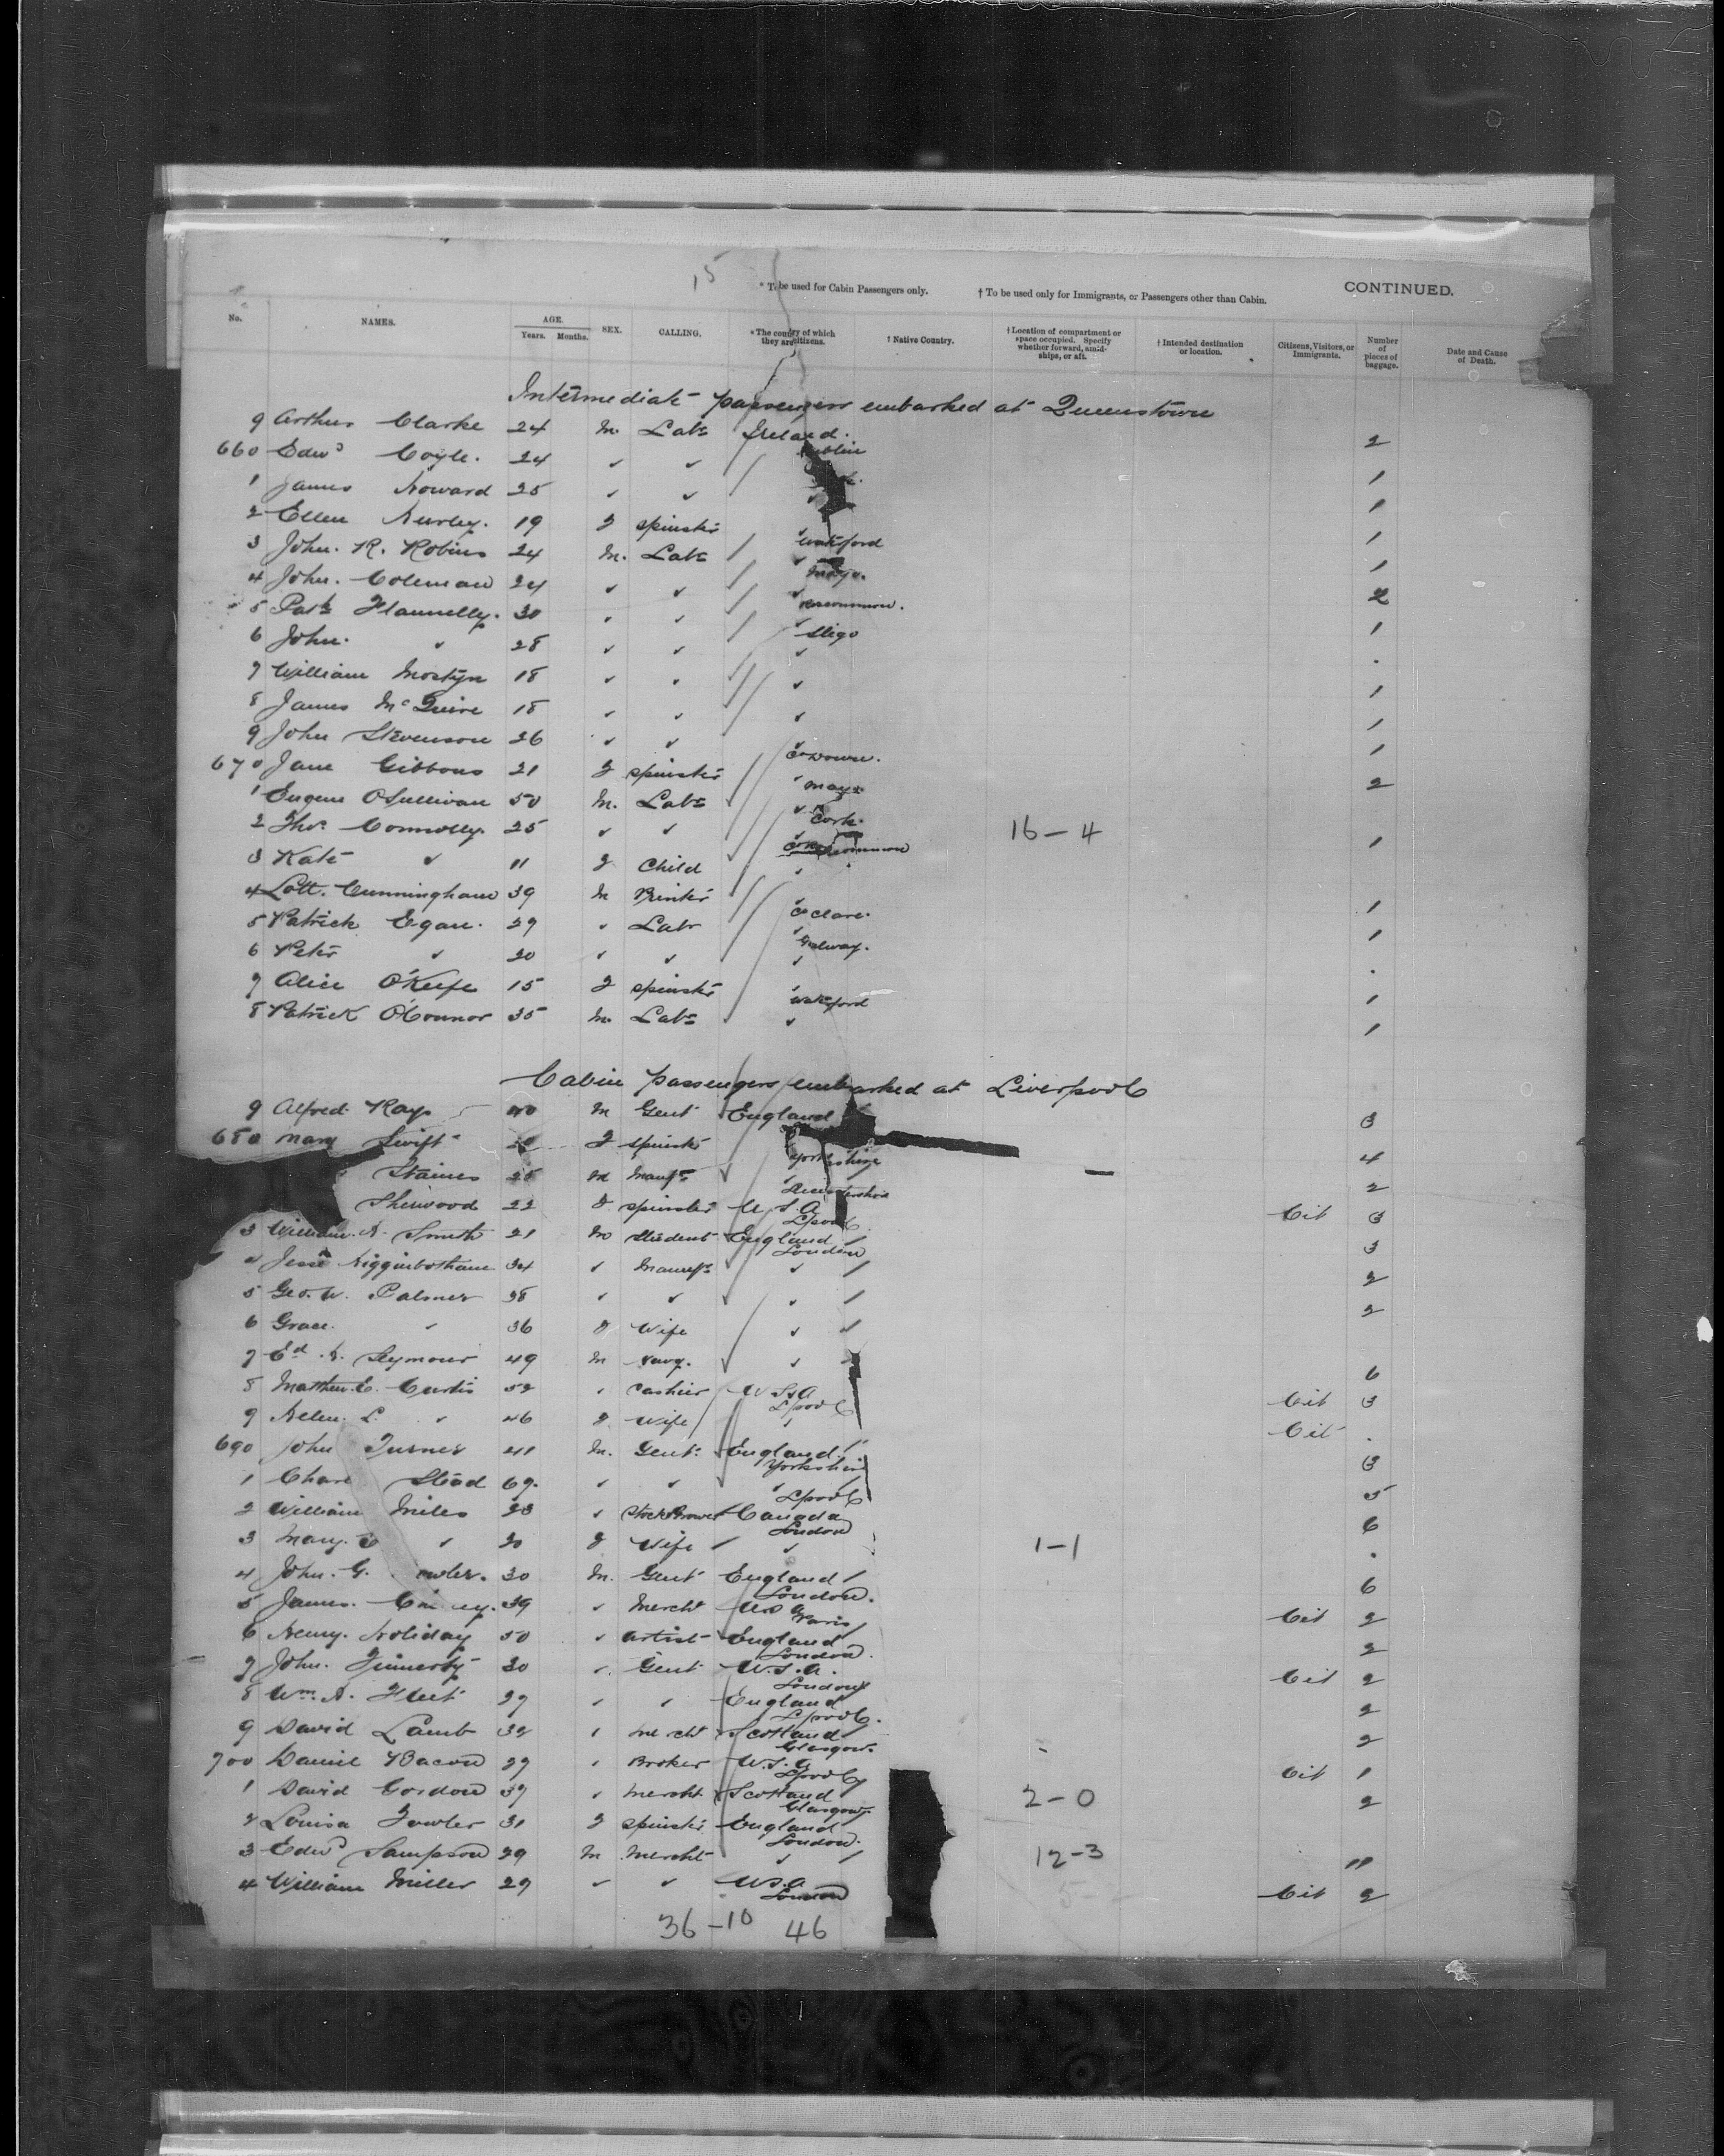 15
* To be used for Cabin Passengers only. † To be used only for Immigrants, or Passengers other than Cabin. CONTINUED.
No. NAMES. AGE. Years. Months. SEX. CALLING. * The country of which they are citizens. † Native Country. † Location of compartment or space occupied. Specify whether forward, amidships, or aft. † Intended destination or location. Citizens, Visitors, or Immigrants. Number of pieces of baggage. Date and Cause of Death.
Intermediate passengers embarked at Queenstown
9 Arthur Clarke 24 M. Labr Ireland. 2
660 Edwd Coyle. 24 ✓ ✓ 1
1 James Howard 25 ✓ ✓ 1
2 Ellen Hurley. 19 F Spinster Waterford 1
3 John. R. Robins 24 M. Labr Mayo. 1
4 John. Coleman 24 ✓ ✓ Roscommon. 2
5 Patk Flannelly. 30 ✓ ✓ Sligo 1
6 John. ✓ 28 ✓ ✓ ✓ .
7 William Mostyn 18 ✓ ✓ ✓ 1
8 James McGuire 18 ✓ ✓ ✓ 1
9 John Stevenson 26 ✓ ✓ Co Down. 1
670 Jane Gibbons 21 F Spinster Mayo 2
1 Eugene O'Sullivan 50 M. Labr Cork.
2 Thos Connolly. 25 ✓ ✓ 16-4 1
3 Kate ✓ 11 F Child ✓
4 Cunningham 39 M Printer Co Clare. 1
5 Patrick Egan. 27 ✓ Labr Galway. 1
6 Peter ✓ 20 ✓ ✓ ✓ .
7 Alice O'Keefe 15 F Spinster Waterford 1
8 Patrick O'Connor 35 M. Labr ✓ 1
Cabin passengers embarked at Liverpool
9 Alfred Kay 40 M Gent England 3
680 Mary Swift F Spinster Yorkshire 4
Staines 25 M Manufr 2
Sherwood 22 F Spinster U.S.A. Lpool Cit 3
3 William. H. Smith 21 M Student England London 3
4 Jesse Higginbotham 34 ✓ Manufr ✓ 2
5 Geo. W. Palmer 38 ✓ ✓ ✓ 2
6 Grace. ✓ 36 F Wife ✓
7 Ed. H. Seymour 49 M Navy. ✓ 6
8 Matthew. C. Curtis 52 ✓ Cashier U.S.A Lpool Cit 3
9 Helen. L. ✓ 46 F Wife ✓ Cit .
690 John Turner 41 M. Gent. England. Yorkshire 3
1 Stead 67. ✓ ✓ ✓ Lpool 5
2 William Miles 23 ✓ Canada London 6
3 Mary. ✓ 20 F Wife ✓ 1-1 .
4 John. G. 30 M. Gent England London. 6
5 James. 39 ✓ Mercht U.S.A Paris Cit 2
6 Henry. Holiday 50 ✓ Artist England London. 2
7 John. Finnerty 30 ✓ Gent U.S.A. London Cit 2
8 Wm. A. Fleet 27 ✓ ✓ England Lpool. 2
9 David Lamb 32 ✓ Mercht Scotland Glasgow. 2
700 Daniel Bacon 27 ✓ Broker U.S.A Lpool Cit 1
1 David Gordon 37 ✓ Mercht. Scotland Glasgow. 2-0 2
2 Louisa Fowler 31 F Spinster England London.
3 Edwd Sampson 29 M Mercht ✓ 12-3 11
4 William Miller 29 ✓ ✓ U.S.A London Cit 2
36-10 46